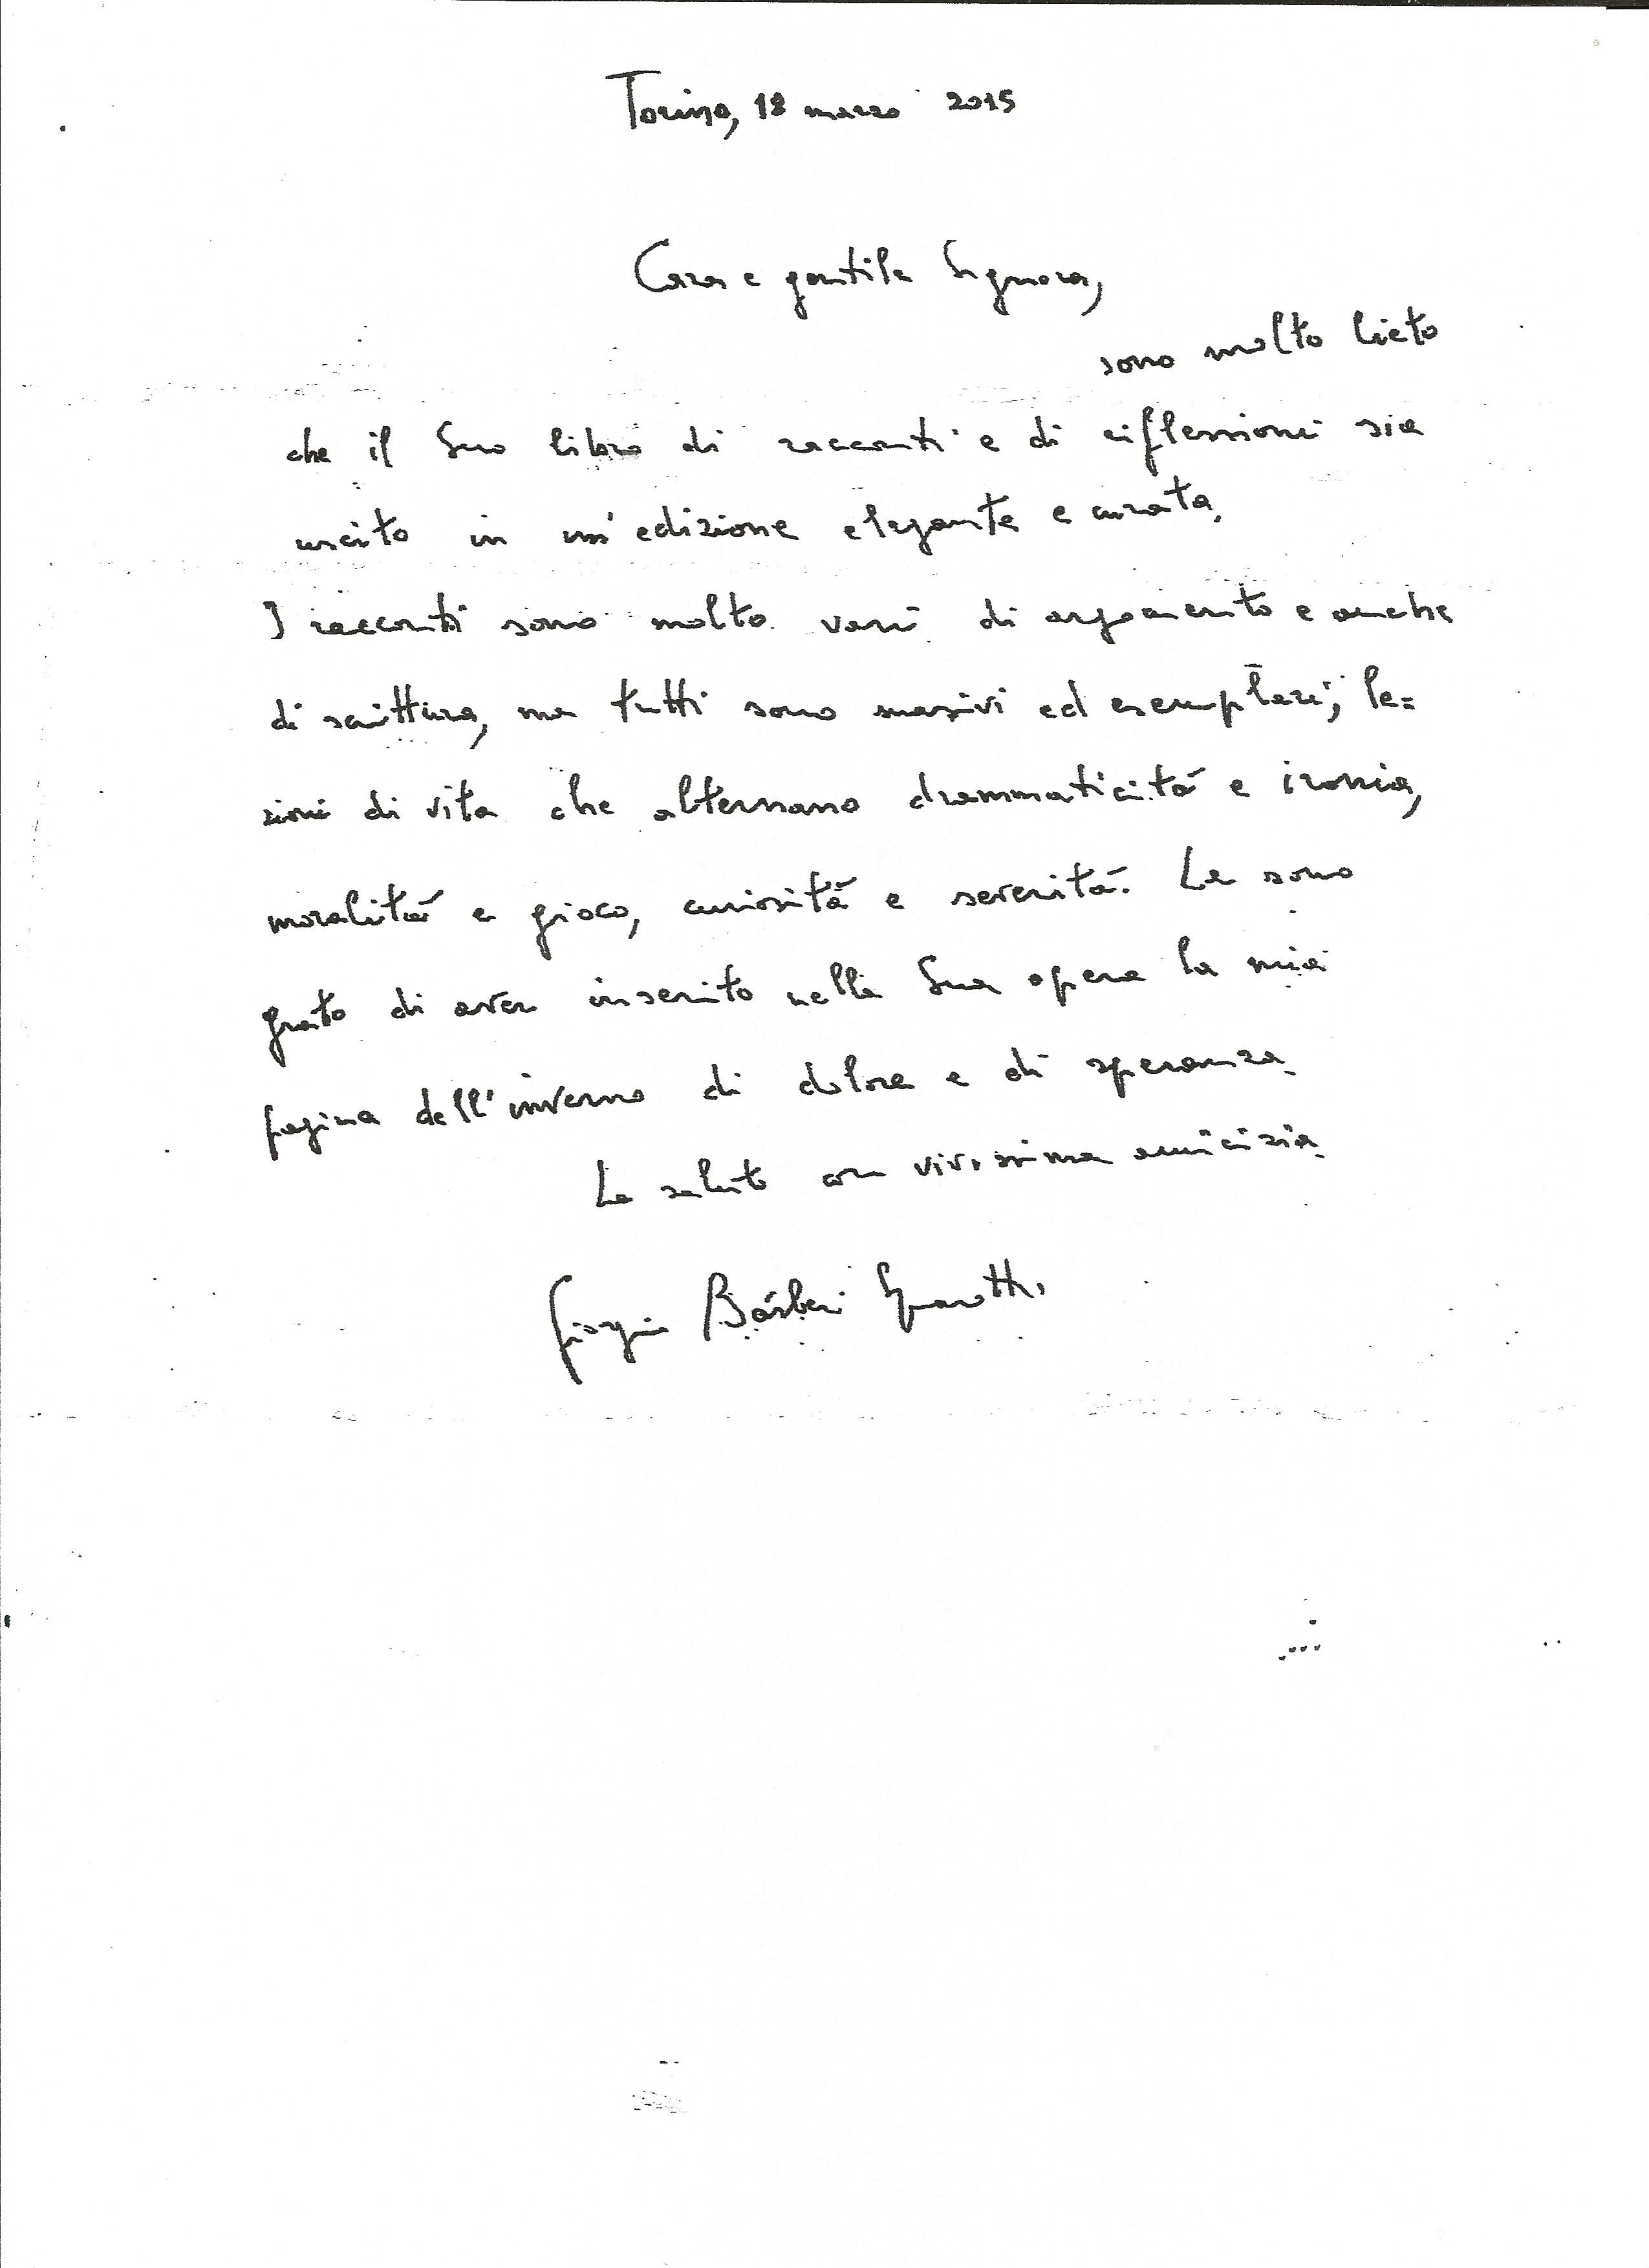 Torino, 18 marzo 2015
Cara e gentile Signora,
sono molto lieto
che il Suo libro di racconti e di riflessioni sia
uscito in un'edizione elegante e curata.
I racconti sono molto vari di argomento e anche
di scrittura, ma tutti sono ed esemplari, le=
zioni di vita che alternano drammaticità e ironia,
moralità e gioco, curiosità e serenità. Le sono
grato di aver inserito nella Sua opera la mia
pagina dell'inverno di dolore e di speranza.
La saluto con vivissima amicizia.
Giorgio Bárberi Squarotti